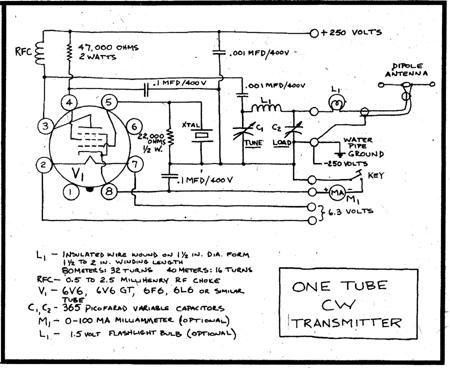 +250 VOLTS
RFC
47,000 OHMS
2 WATTS
.001 MFD/400V
.1 MFD/400V
.001 MFD/400V
L1
DIPOLE
ANTENNA
L1
4
5
3
6
XTAL
C1
C2
22,000
OHMS
1/2 W.
TUNE
LOAD
WATER
PIPE
GROUND
2
7
-250 VOLTS
V1
.1 MFD/400V
KEY
1
8
+
MA
-
M1
6.3 VOLTS
L1 - INSULATED WIRE WOUND ON 1 1/2 IN. DIA. FORM
1 1/2 TO 2 IN. WINDING LENGTH
80 METERS: 32 TURNS 40 METERS: 16 TURNS
RFC - 0.5 TO 2.5 MILLIHENRY RF CHOKE
V1 - 6V6, 6V6 GT, 6F6, 6L6 OR SIMILAR
TUBE
C1, C2 - 365 PICOFARAD VARIABLE CAPACITORS
M1 - 0-100 MA MILLIAMMETER (OPTIONAL)
L1 - 1.5 VOLT FLASHLIGHT BULB (OPTIONAL)
ONE TUBE
CW
TRANSMITTER